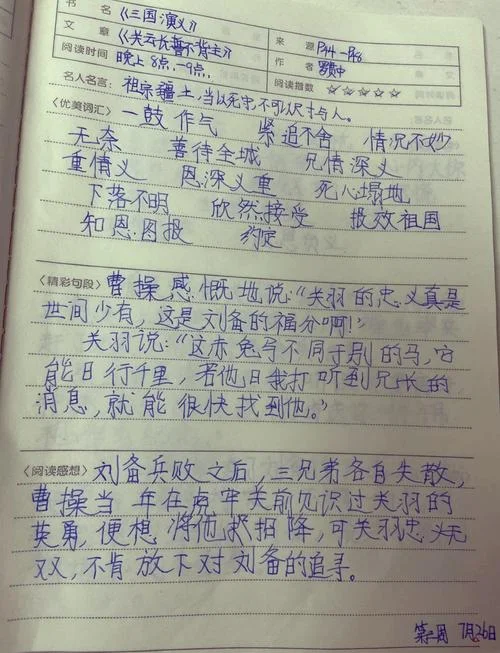 书 名 《三国演义》
文 章 《关云长善不背主》 来 源 P44-P48
阅读时间 晚上8点-9点. 作 者 罗贯中
阅读指数 ☆☆☆☆☆
名人名言: 祖宗疆土,当以死守,不可以尺寸与人。
〈优美词汇〉 一鼓作气 紧追不舍 情况不妙
无奈 善待全城 兄情深义
重情义 恩深义重 死心塌地
下落不明 欣然接受 报效祖国
知恩图报 约定
〈精彩句段〉曹操感慨地说:“关羽的忠义真是
世间少有,这是刘备的福分啊!”
关羽说:“这赤兔马不同于别的马,它
能日行千里,若他日我打听到兄长的
消息,就能很快找到他。”
〈阅读感想〉刘备兵败之后,三兄弟各自失散,
曹操当年在虎牢关前见识过关羽的
英勇,便想将他招降,可关羽忠义无
双,不肯放下对刘备的追寻。
第二周 7月26日